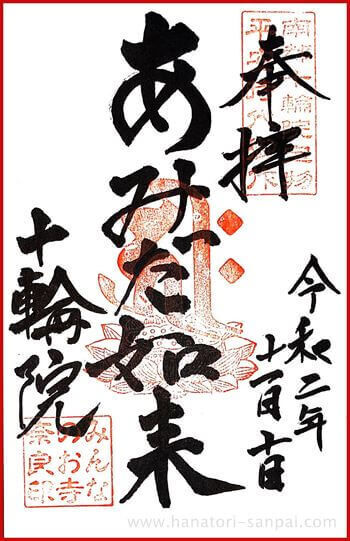 奉拝
令和二年
あみだ如来
十輪院
みんな
のお寺
奈良印
www.hanatori-sanpai.com